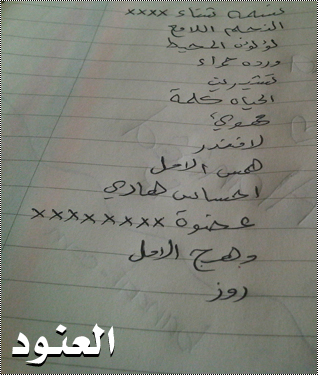 نسمة شتاء xxxx
النجم اللامع
لؤلؤة المحيط
ورده حمراء
تشيريت
الحياه كلمة
لافندر
همس الامل
احساس هادي
عضوة xxxxxxxx
وهج الامل
روز
العنود